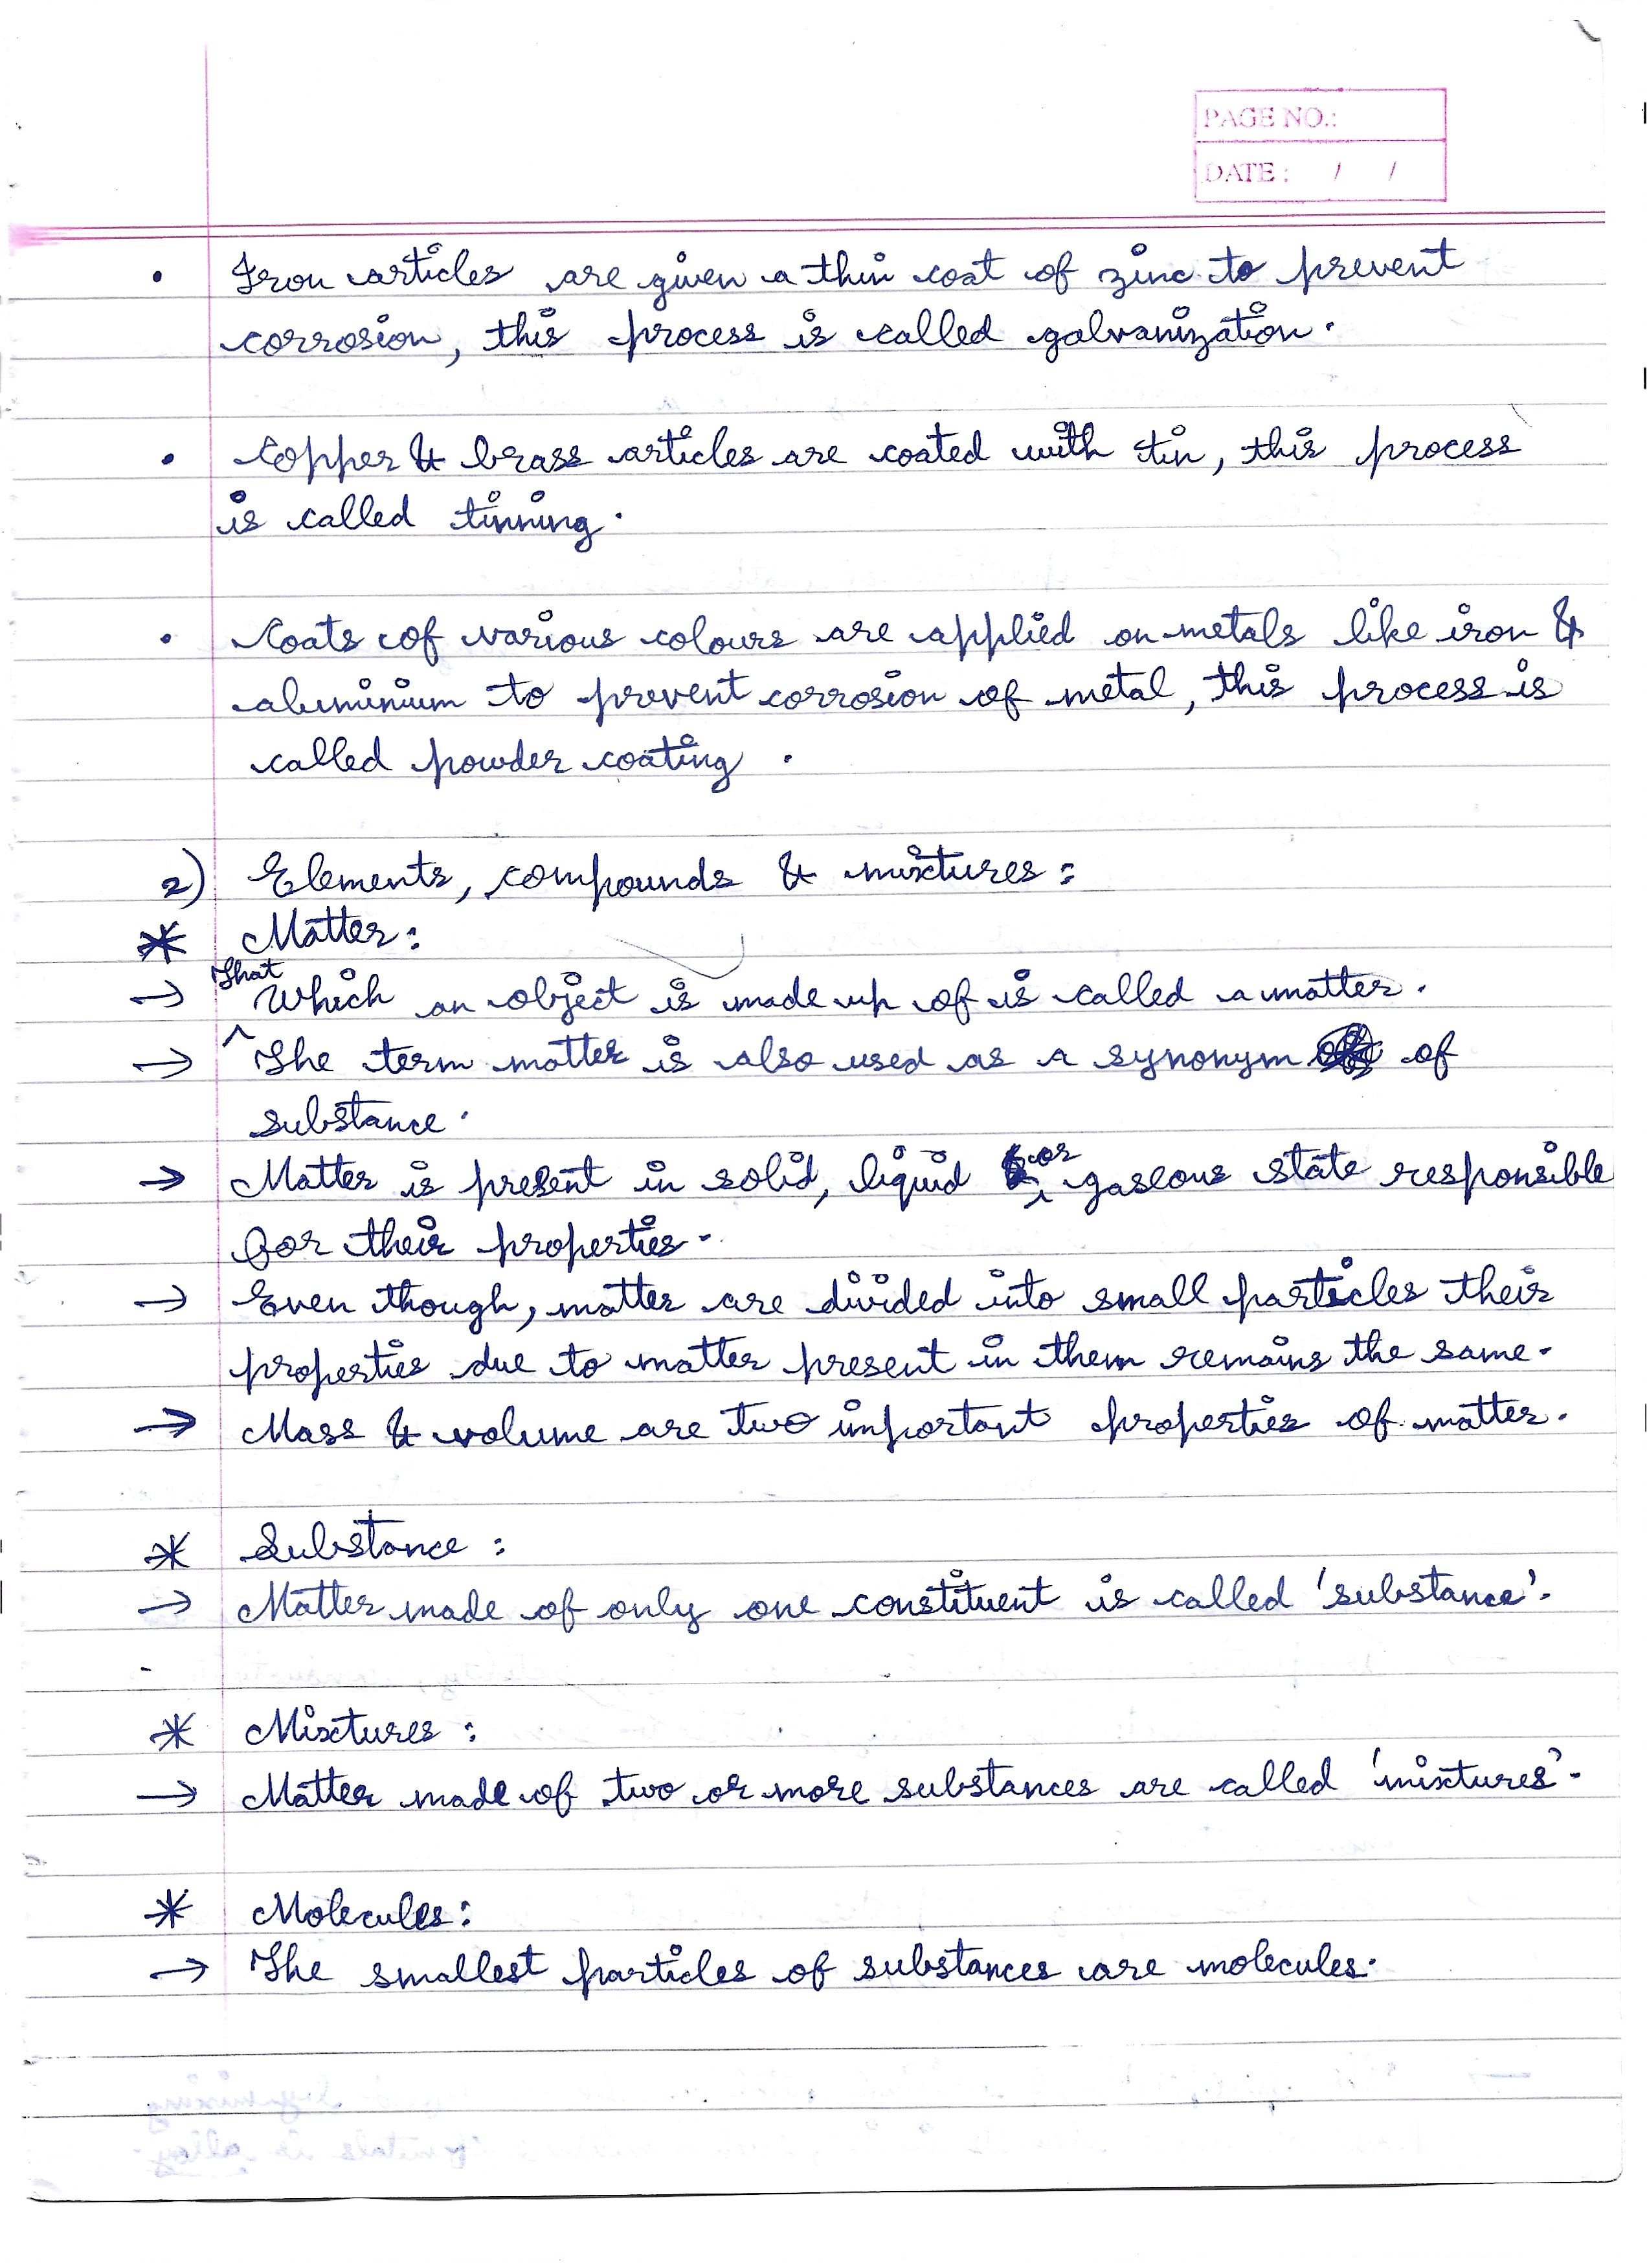 PAGE NO.:
DATE : / /
• Iron articles are given a thin coat of zinc to prevent
corrosion, this process is called galvanization.
• Copper & brass articles are coated with tin, this process
is called tinning.
• Coats of various colours are applied on metals like iron &
aluminium to prevent corrosion of metal, this process is
called powder coating .
2) Elements, compounds & mixtures :
* Matter :
→ That Which an object is made up of is called a matter.
→ The term matter is also used as a synonym of
substance.
→ Matter is present in solid, liquid or gaseous state responsible
for their properties.
→ Even though, matter are divided into small particles their
properties due to matter present in them remains the same.
→ Mass & volume are two important properties of matter.
* Substance :
→ Matter made of only one constituent is called 'substance'.
* Mixtures :
→ Matter made of two or more substances are called 'mixtures'.
* Molecules :
→ The smallest particles of substances are molecules.